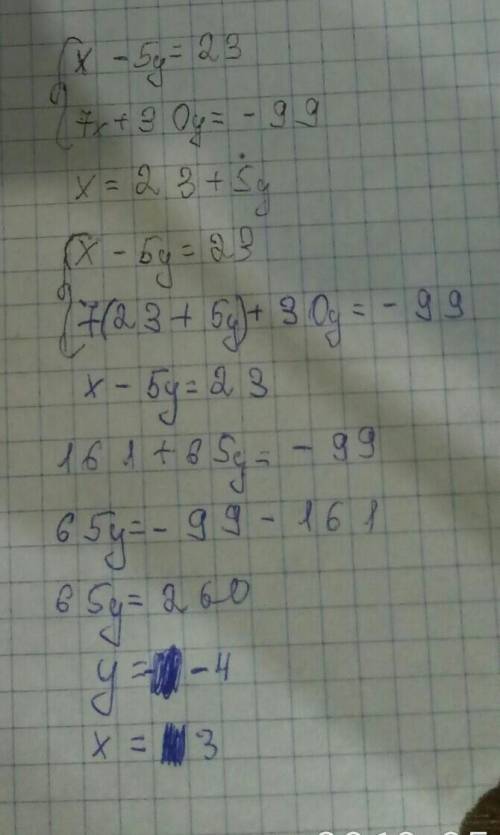 x - 5y = 23
7x + 30y = - 99
x = 23 + 5y
x - 5y = 23
7(23 + 5y) + 30y = - 99
x - 5y = 23
161 + 65y = - 99
65y = - 99 - 161
65y = 260
y = - 4
x = 3